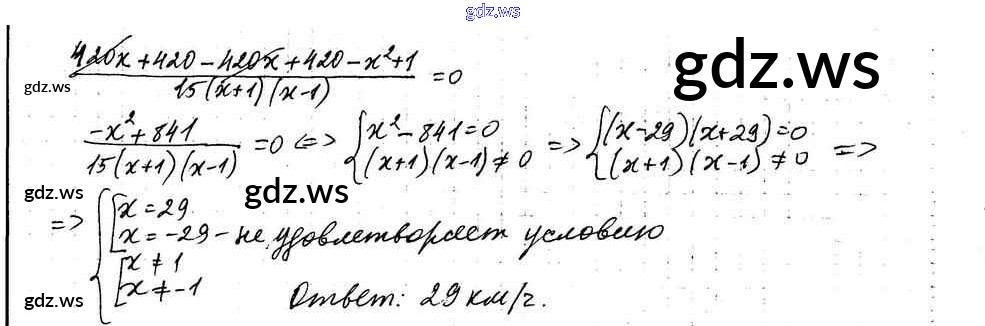 gdz.ws
420x + 420 - 420x + 420 - x² + 1
/ 15(x+1)(x-1) = 0
gdz.ws
gdz.ws
-x² + 841 / 15(x+1)(x-1) = 0 <=> { x² - 841 = 0 (x+1)(x-1) ≠ 0 => { (x-29)(x+29) = 0 (x+1)(x-1) ≠ 0 =>
gdz.ws
gdz.ws
=> { [ x = 29
x = -29 - не удовлетворяет условию
[ x ≠ 1
x ≠ -1
Ответ: 29 км/г.
gdz.ws